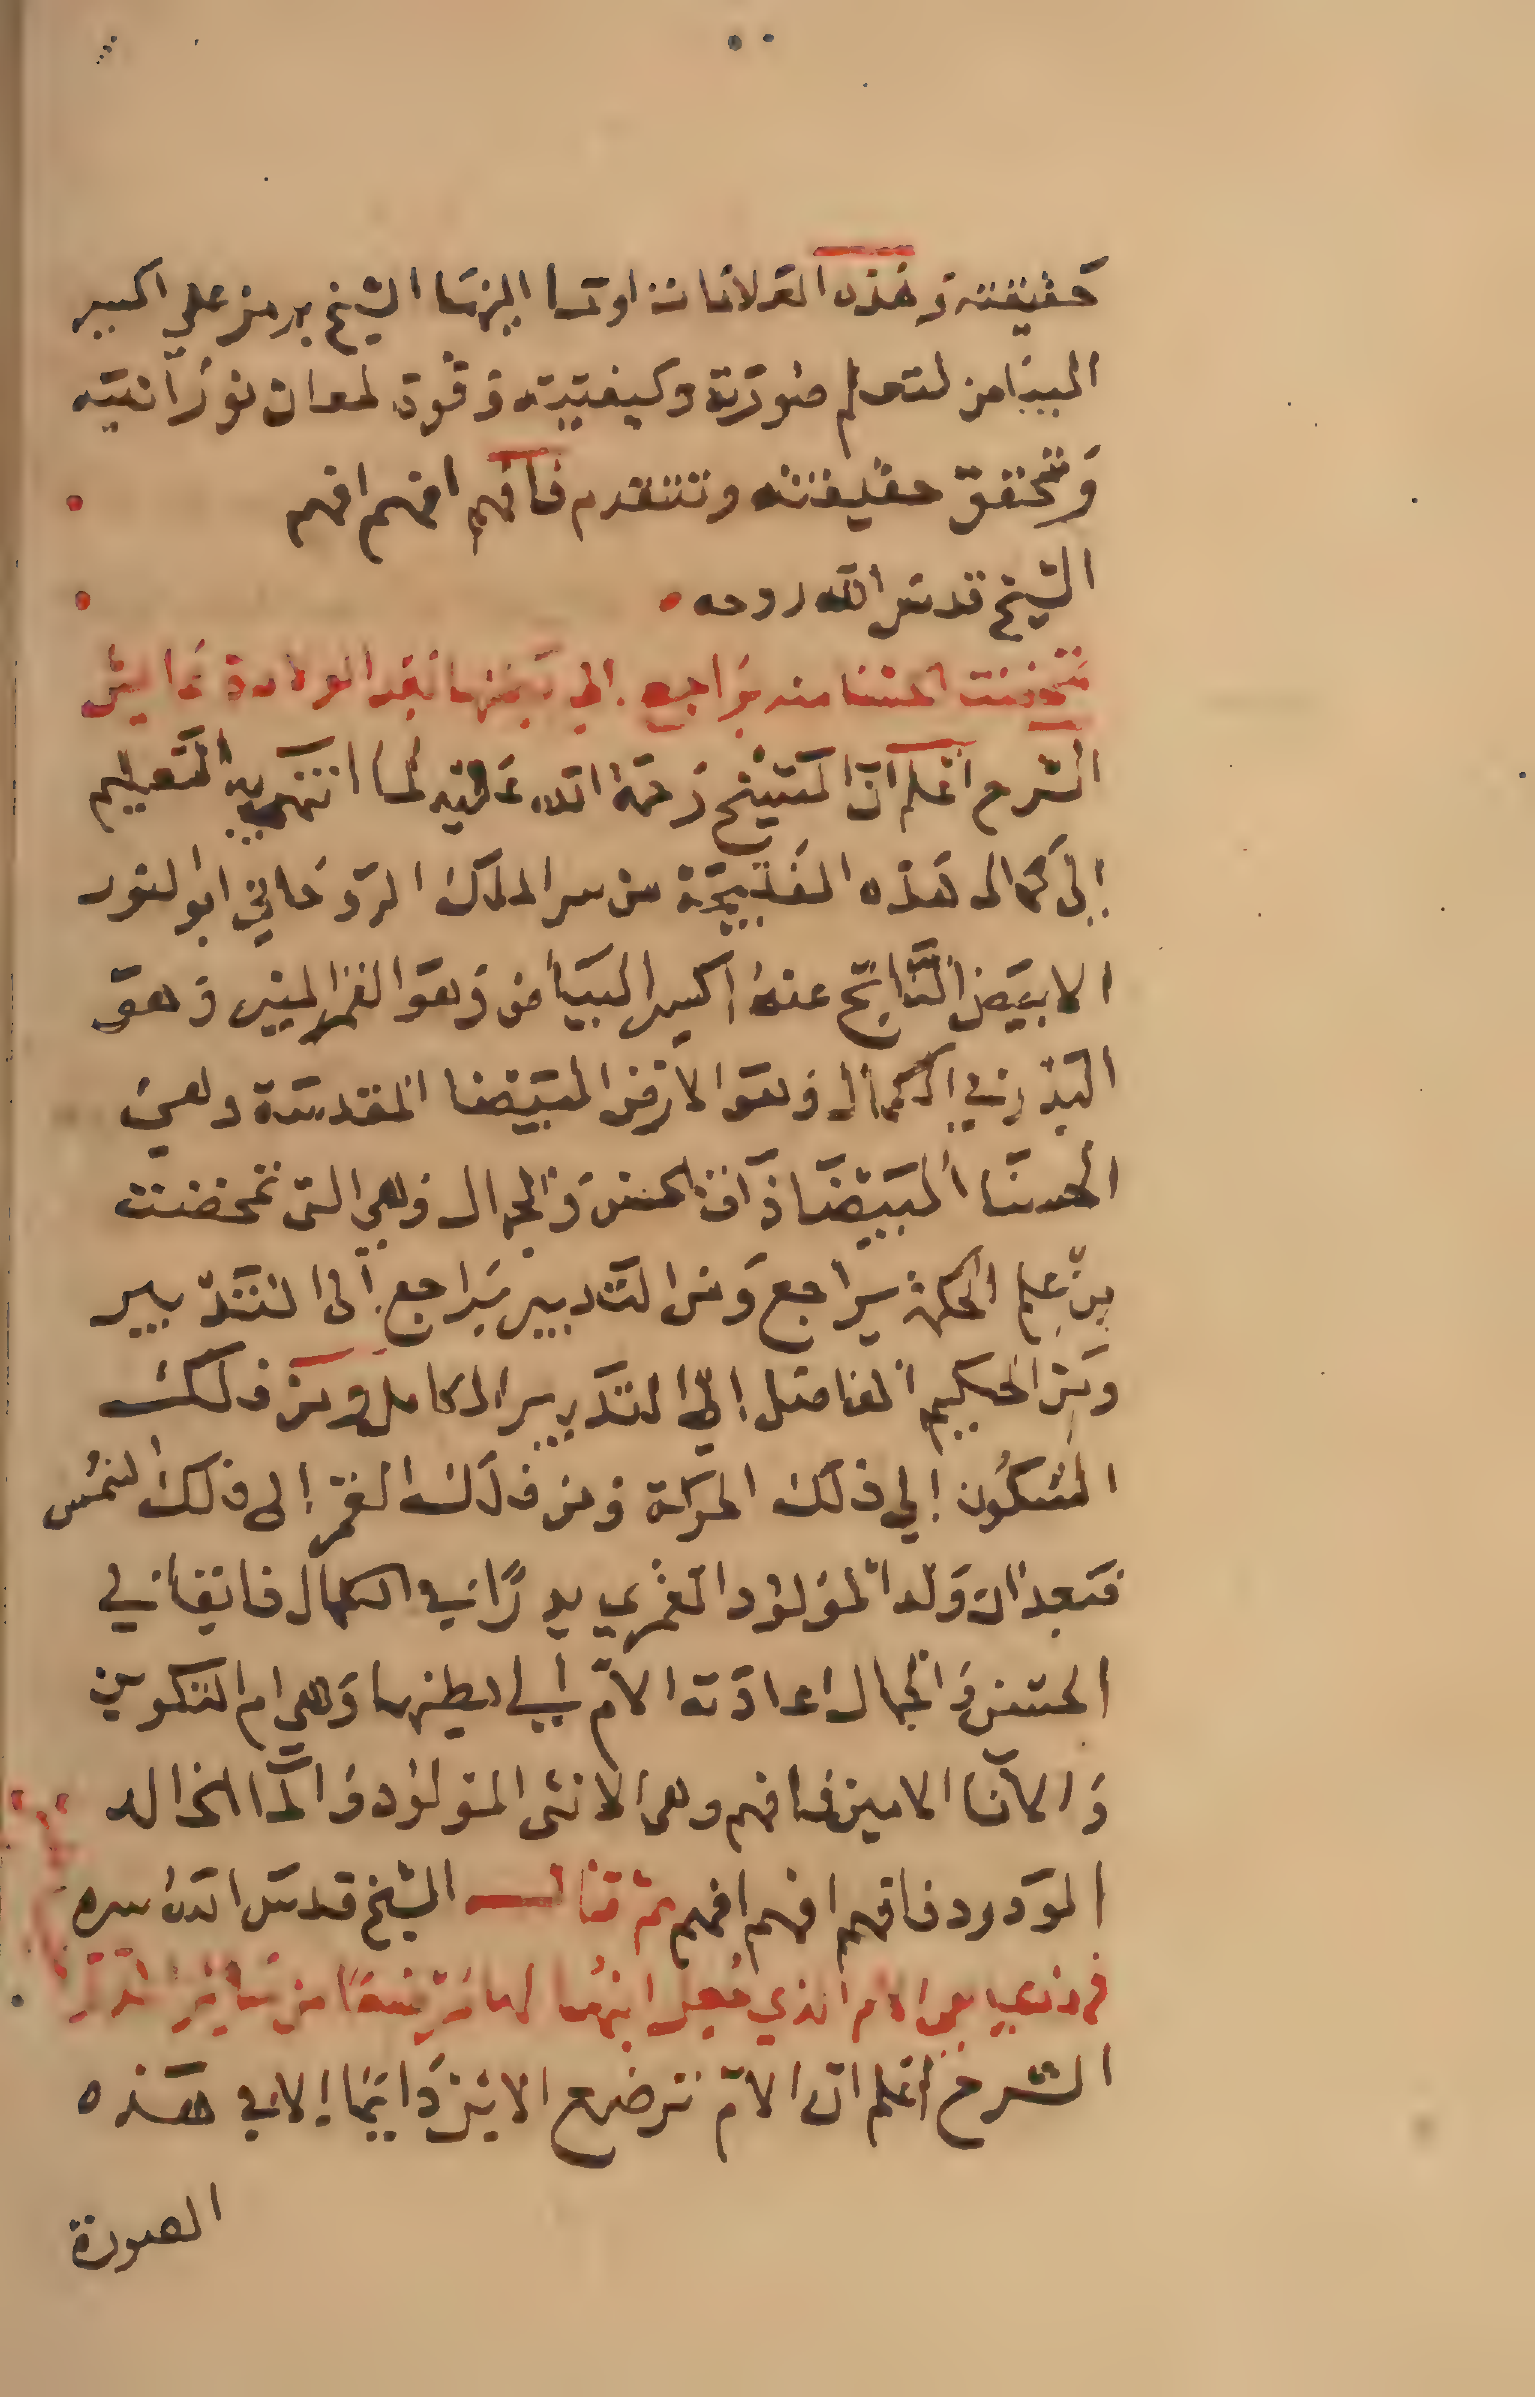 حقيقته وهذه العلامات اوما اليها الشيخ برمز على اكسير
البياض لتعلم صورته وكيفيته وقوة لمعان نورانيته
وتحقق حقيقته وتتقدم فافهم افهم افهم
الشيخ قدس الله روحه
تمخضت الحسنا منه براجع الى بطنها بعد الولادة عايش
الشرح اعلم ان الشيخ رحمة الله عليه لما انتهى به التعليم
الى كمال هذه النتيجة من سر الملك الروحاني ابو النور
الابيض الناتج عنه اكسير البياض وهو القمر المنير وهو
البدر في الكمال وهو الارض البيضا المقدسة وهي
الحسنا البيضا ذات الحسن والجمال وهي التي تمخضت
من علم الحكمة براجع ومن التدبير براجع الى التدبير
ومن الحكيم الفاضل الى التدبير الكامل ومن فلك
السكون الى فلك الحركة ومن فلك القمر الى فلك الشمس
فبعد ان ولد المولود القمري بدرًا في الكمال فائقا في
الحسن والجمال اعادته الام الى بطنها وهي ام التكوين
والانا الامين فافهم وهي الانثى المولود والما الخالد
المودود فافهم افهم افهم ثم قال الشيخ قدس الله سره
هي الام الذي جعل ابنها لها مرضعًا من سائر
الشرح اعلم ان الام ترضع الابن دايما الا في هذه
الصورة